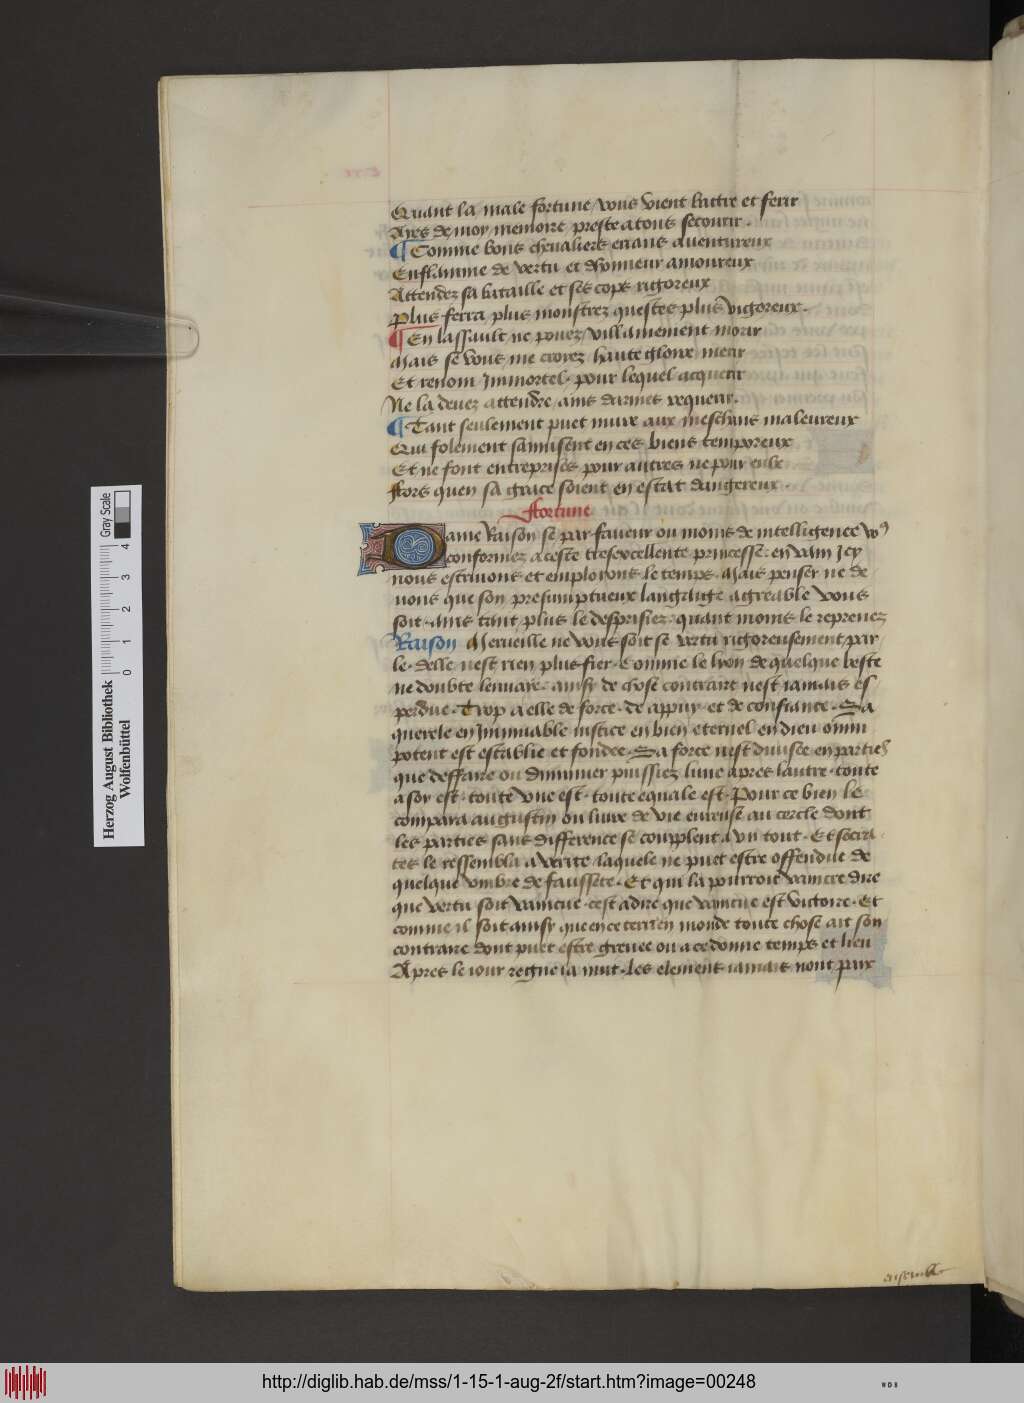 Quant la male fortune vous vient battre et ferir
Ayes de moy memoire preste a tous secourir.
¶ Comme bons chevaliers errans aventureux
Enflamme de vertu et dhonneur amoureux
Attendez sa bataille et ses cops rigoreux
Plus ferra plus monstrez questes plus vigoreux.
¶ En lassault ne povez villainement morir
Mais se vous me croyez haute gloire merir
Et renom Immortel. pour lequel acquerir
Ne la devez attendre ains darmes requerir.
¶ Tant seulement puet nuire aux meschans maleureux
Qui folement samusent en ces biens temporeux
Et ne font entreprises pour autres ne pour eulx
Fors quen sa grace soient en estat dangereux.
Fortune
Dame Raison se par faveur ou moins de intelligence
conformez a ceste tresexcellente princesse: en vain Icy
nous estrivons et emploions le temps. Mais penser ne de
vons que son presumptueux langaige agreable vous
soit. ains tant plus le desprisiez. quant moins le reprenez
Raison Merveille ne vous soit se vertu rigoreusement par
le. delle nest rien plus fier. Comme le lyon de quelque beste
ne doubte lenvaye. ainsy de chose contraire nest iamais es
perdue. Trop a elle de force. de appuy. et de constance. Sa
querele en Immuable iustice en bien eternel en dieu omni
potent est establie et fondee. Sa force nest divisee en parties
que deffaire ou diminuer puissiez lune apres lautre. toute
a soy est. toute vne est. toute equale est. Pour ce bien le
compara augustin ou livre de vie eureuse au cercle dont
les parties sans difference se couplent a vn tout. Et socra
tes le ressembla a verite laquele ne puet estre offendue de
quelque vmbre de faussete. Et qui la pourroit vaincre dire
que vertu soit vaincue. cest a dire que vaincue est victoire. Et
comme il soit ainsy que en ce terrien monde toute chose ait son
contraire dont puet estre grevee ou a ce donne temps et lieu
Apres le iour regne la nuit. les elemens iamais nont paix
Herzog August Bibliothek
Wolfenbüttel
0 1 2 3 4
Gray Scale
http://diglib.hab.de/mss/1-15-1-aug-2f/start.htm?image=00248
WDB